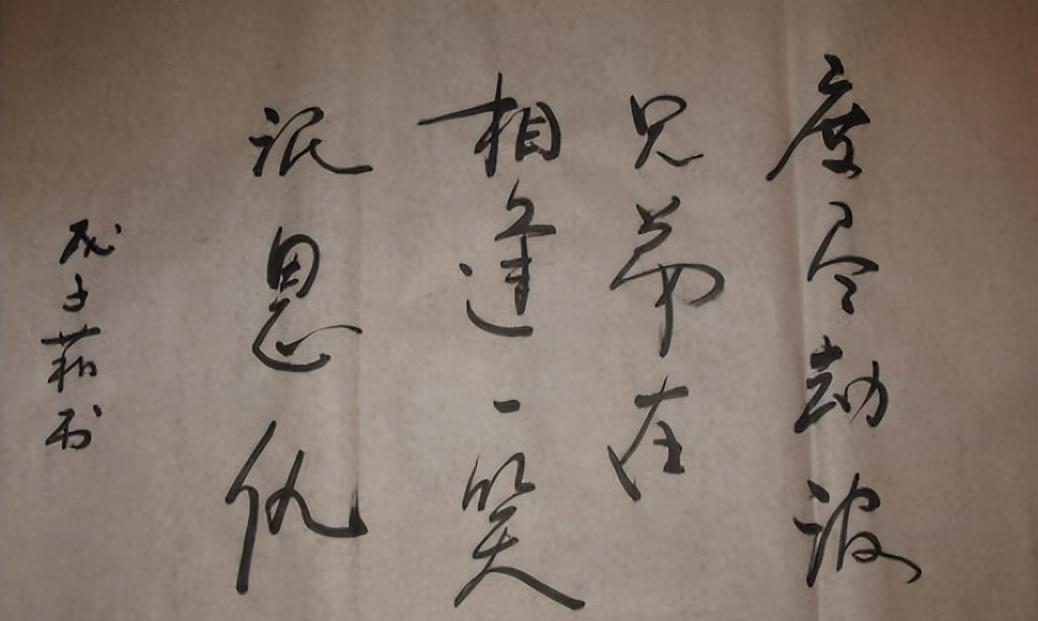 度尽劫波
兄弟在
相逢一笑
泯恩仇
戊子书